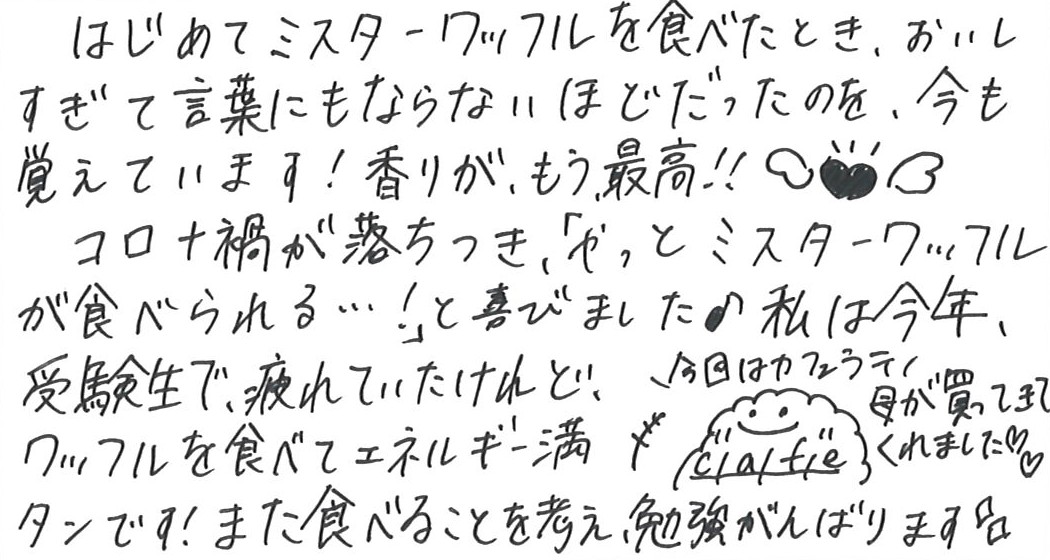 はじめてミスターワッフルを食べたとき、おいし
すぎて言葉にもならないほどだったのを、今も
覚えています!香りが、もう、最高!!
コロナ禍が落ちつき、「やっとミスターワッフル
が食べられる…!」と喜びました♪私は今年、
受験生で、疲れていたけれど、
ワッフルを食べてエネルギー満
タンです!また食べることを考え、勉強がんばります
今回はカフェラテ
母が買ってきて
くれました♡♡